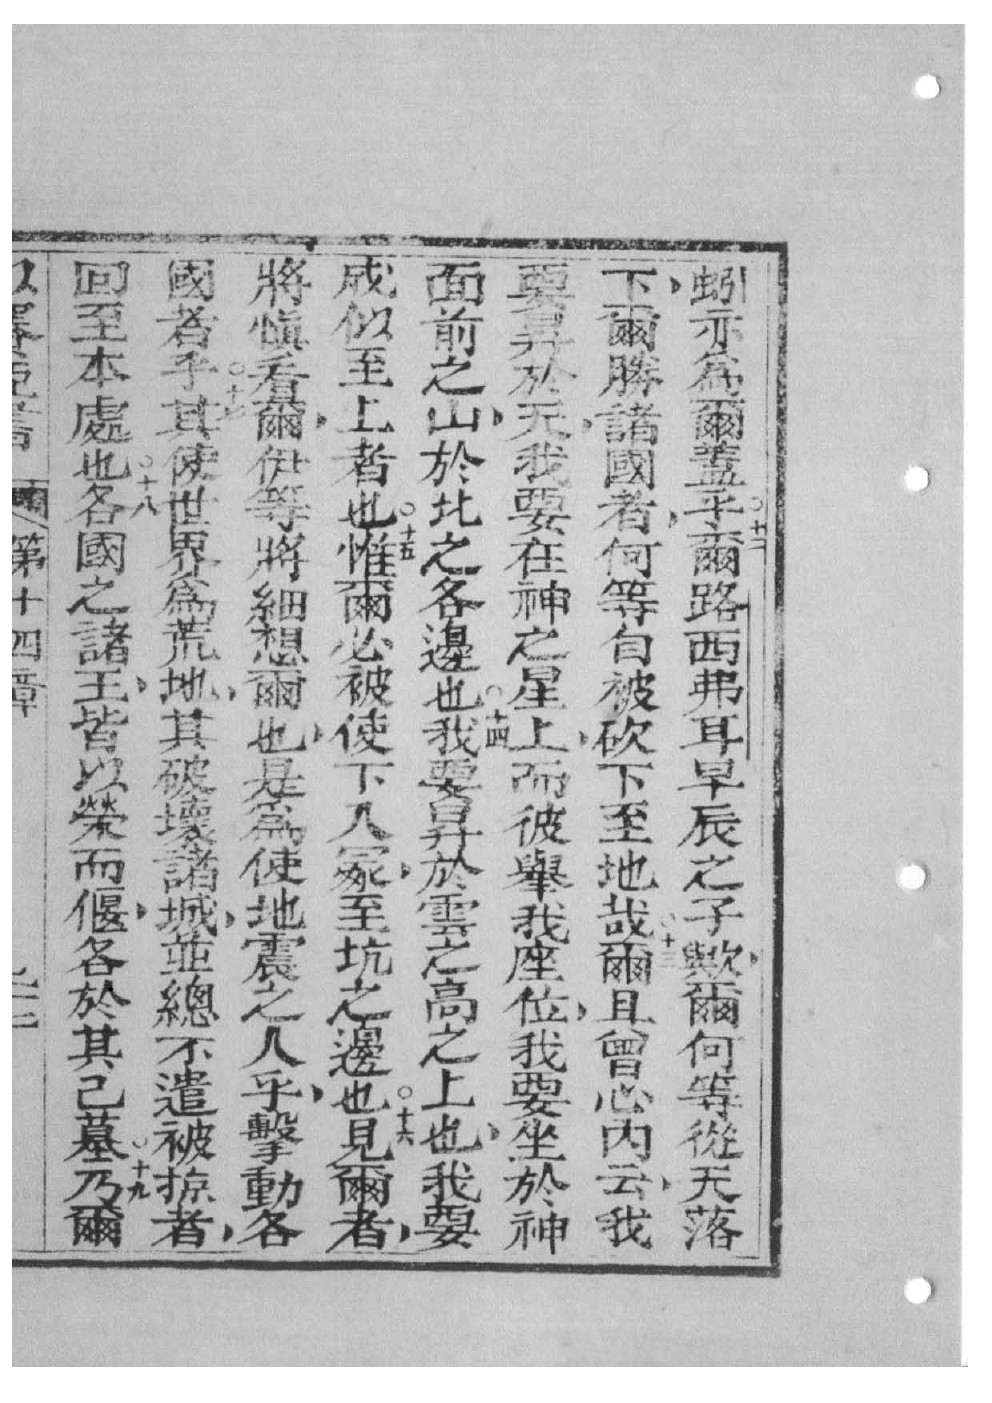 蚓亦為爾蓋乎○十二爾路西弗耳早辰之子歟爾何等從天落
下爾勝諸國者何等自被砍下至地哉○十三爾且曾心內云我
要昇於天我要在神之星上而彼舉我座位我要坐於神
面前之山於北之各邊也○十四我要昇於雲之高之上也我要
成似至上者也○十五惟爾必被使下入冢至坑之邊也○十六見爾者
將慎看爾伊等將細想爾也是為使地震之人乎擊動各
國者乎○十七其使世界為荒地其破壞諸城並總不遣被掠者
回至本處也○十八各國之諸王皆以榮而偃各於其己墓○十九乃爾
第十四章